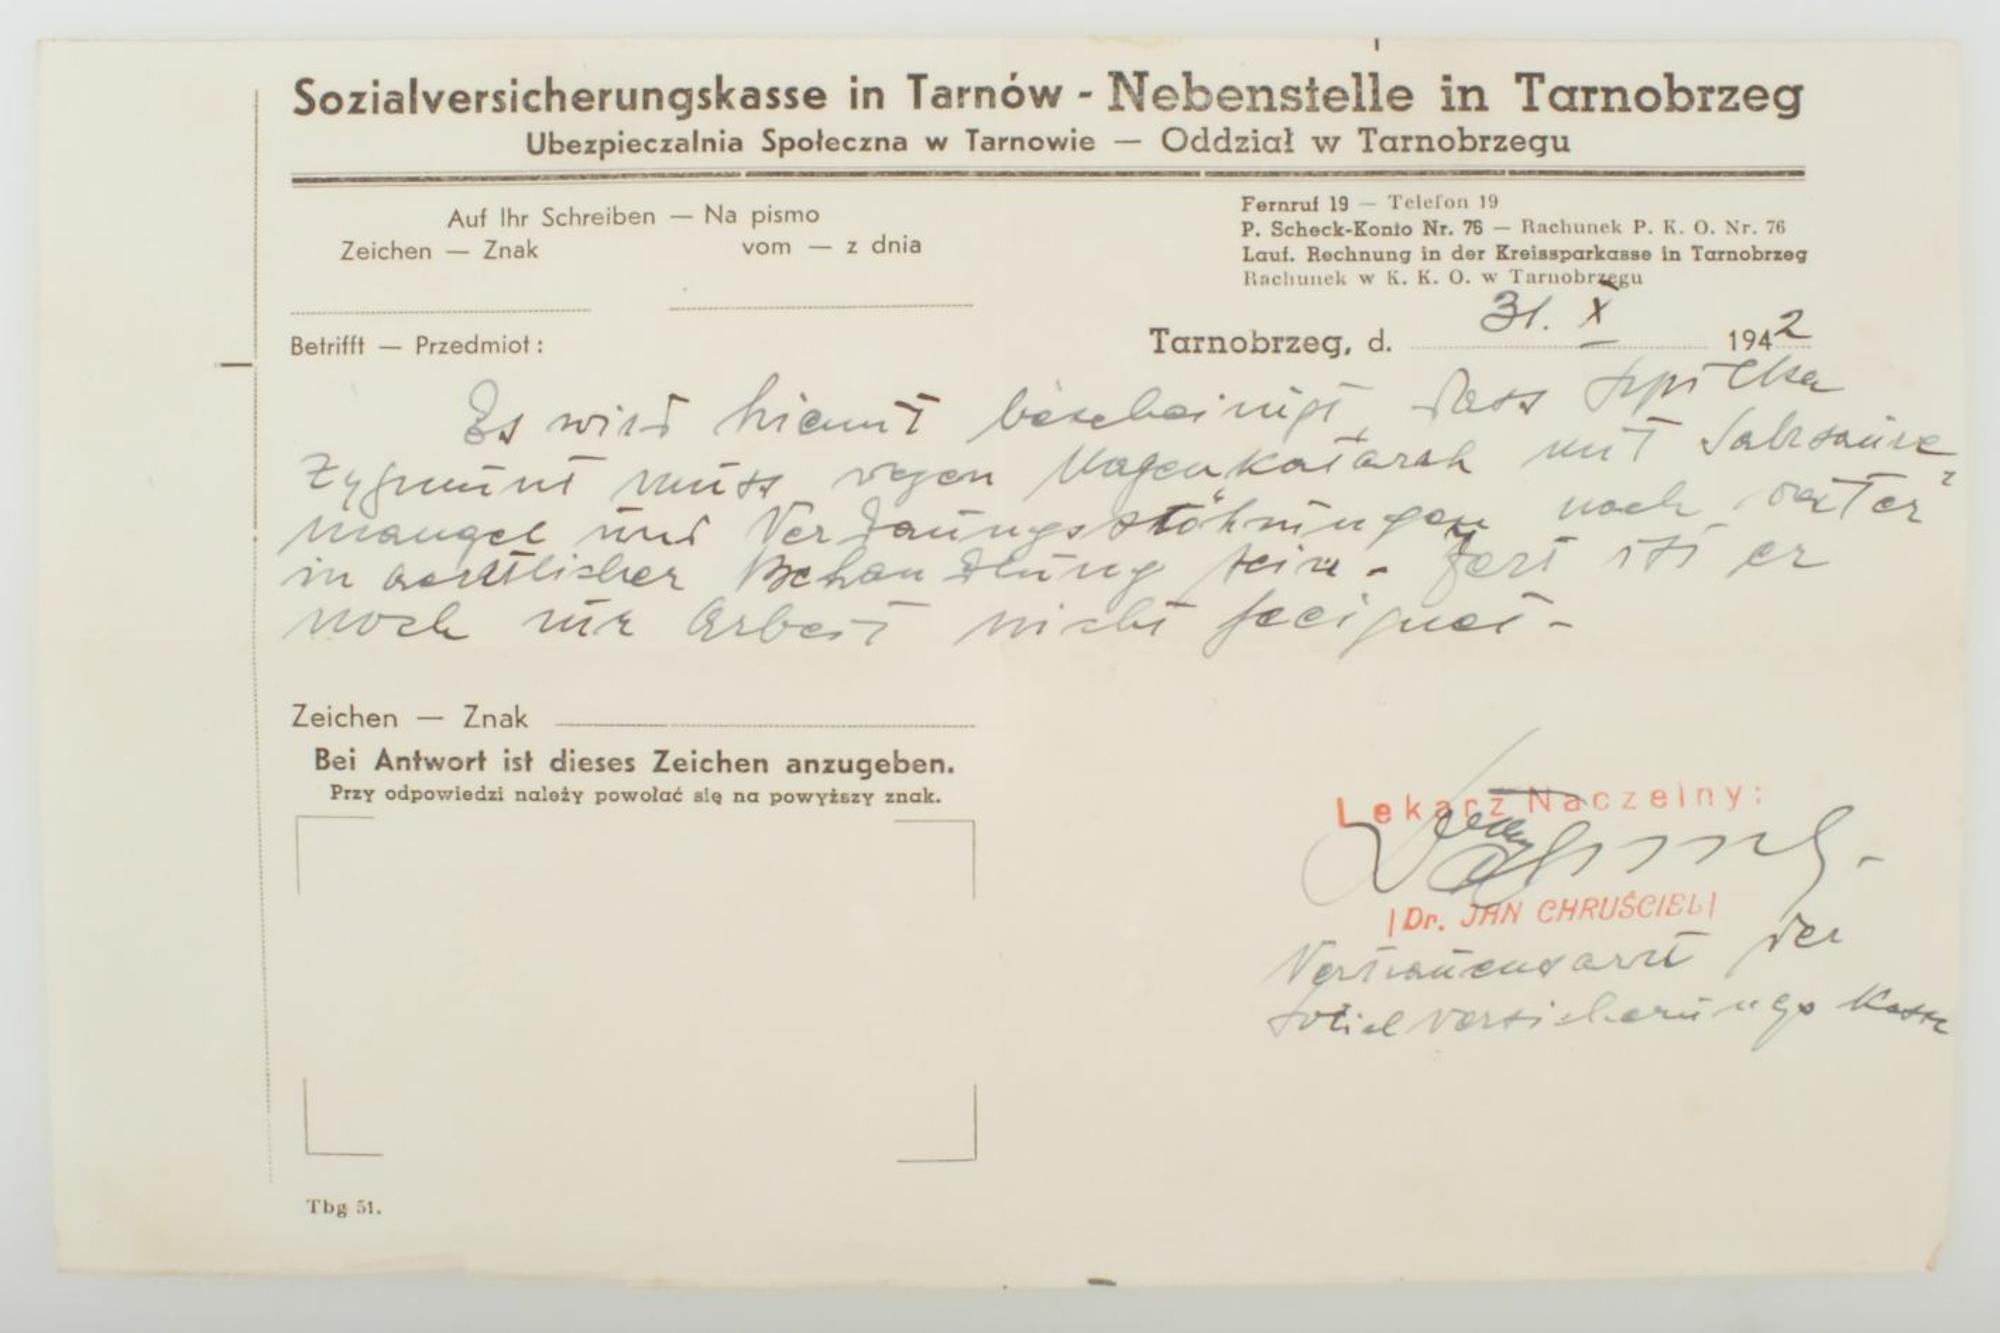 Sozialversicherungskasse in Tarnów - Nebenstelle in Tarnobrzeg
Ubezpieczalnia Społeczna w Tarnowie — Oddział w Tarnobrzegu
Auf Ihr Schreiben — Na pismo
Zeichen — Znak vom — z dnia
Fernruf 19 — Telefon 19
P. Scheck-Konto Nr. 76 — Rachunek P. K. O. Nr. 76
Lauf. Rechnung in der Kreissparkasse in Tarnobrzeg
Rachunek w K. K. O. w Tarnobrzegu
Betrifft — Przedmiot:
Tarnobrzeg, d. 31. X 1942
Es wird hiemit bescheinigt, dass
Zygmunt muss wegen Magenkatarah mit Salzsäure
mangel und Verdaungsstöhrungen noch weiter
in aerztlicher Behandlung sein - ist er
noch zur Arbeit nicht geeignet -
Zeichen — Znak
Bei Antwort ist dieses Zeichen anzugeben.
Przy odpowiedzi należy powołać się na powyższy znak.
Lekarz Naczelny:
|Dr. JAN CHRUŚCIEL|
Vertrauensarzt der
Sozialversicherungs Kasse
Tbg 51.